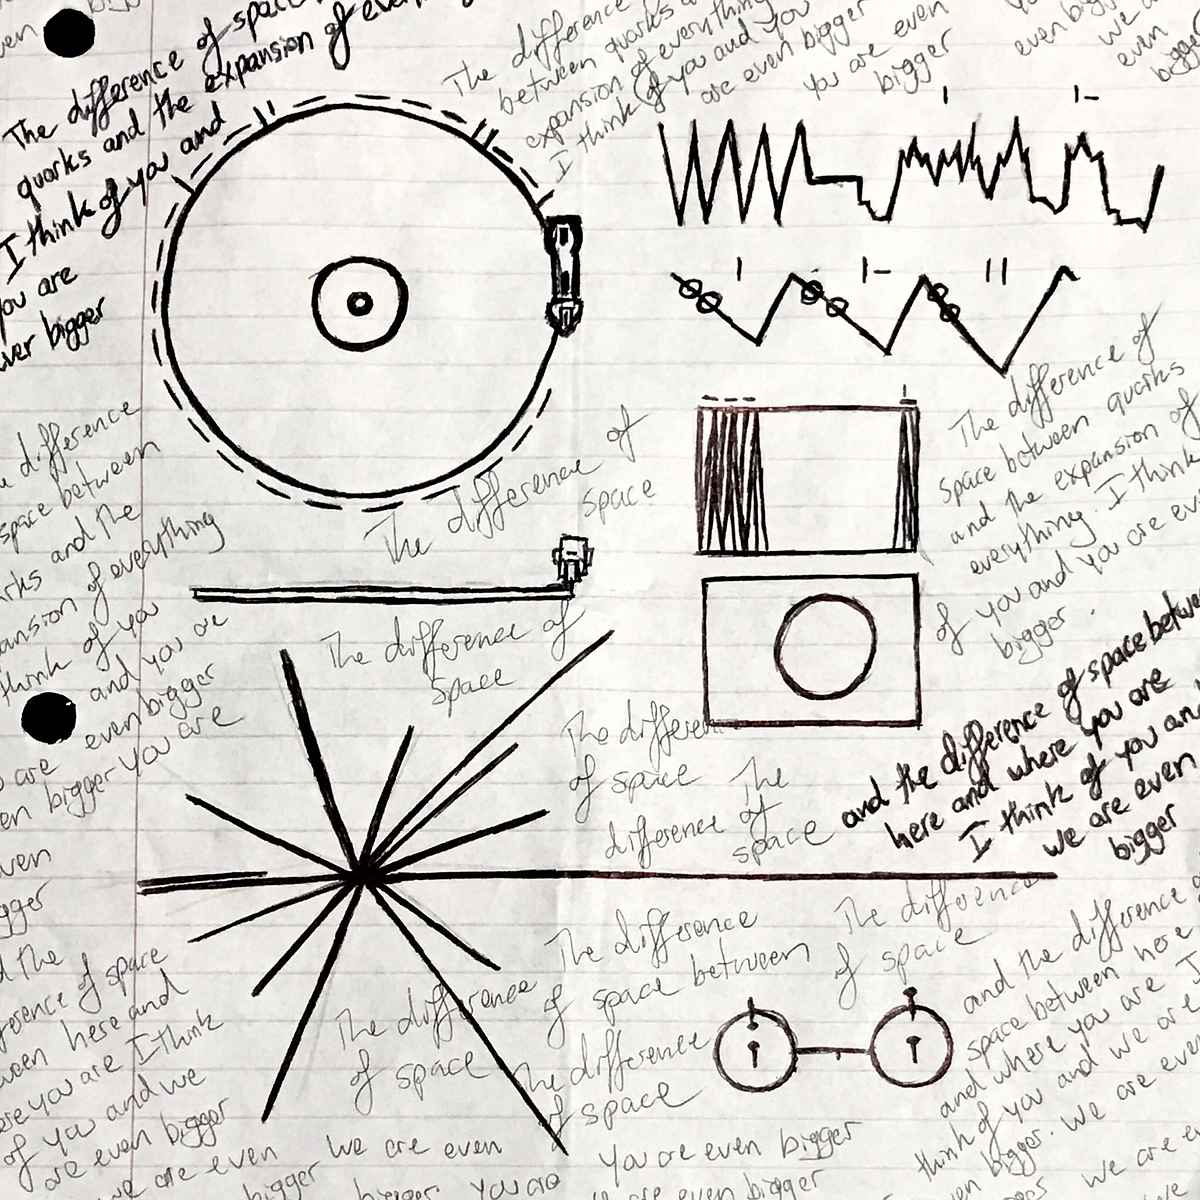 The difference of space
quarks and the expansion of
I think of you and
you are
bigger
The difference
between quarks
expansion of everything
I think of you and you
are even bigger
you are even
bigger
even bigger
we
even
bigger
difference
space between
and the
of everything
think of you
and you are
even bigger
are
bigger you are
The difference of
space
The difference of
space
The difference of
space between quarks
and the expansion of
everything. I think
of you and you are
bigger.
The
of space
The
difference of
space
and the difference of space
here and where you are
I think of you and
we are even
bigger
the
of space
here and
you are I think
of you and we
are even bigger
are even
bigger
The difference
of space
we are even
bigger you are
The difference
of space between
The difference
of space
You are even bigger
are even bigger
The difference
of space
and the difference
space between here
and where you are I
think of you and we are
bigger. We are even
we are